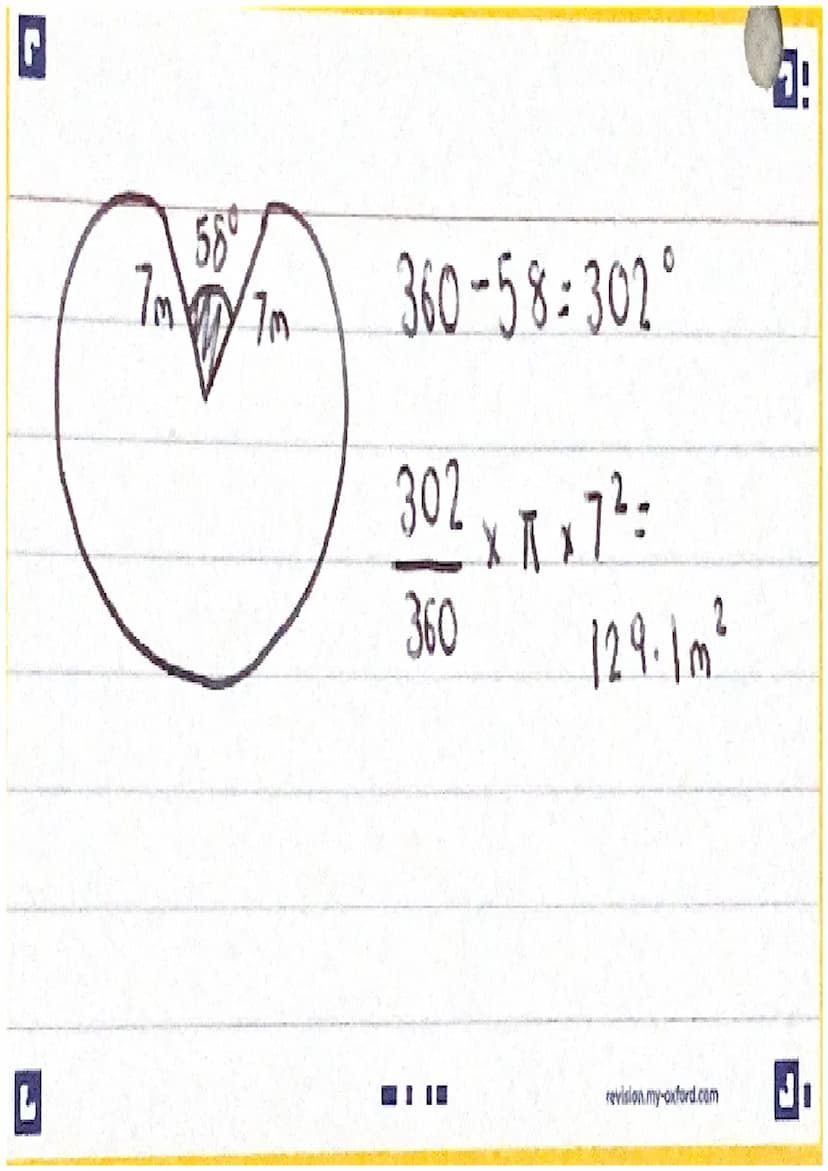 58°
7m 7m
360-58=302°
302
360
x π x 7²=
129.1m²
revision.my-oxford.com